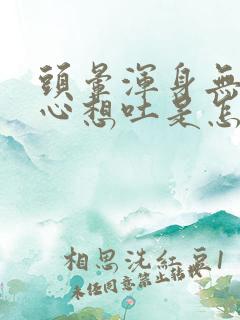 頭暈渾身無
心想吐是怎
相思洗紅豆1
未任同意禁止転載